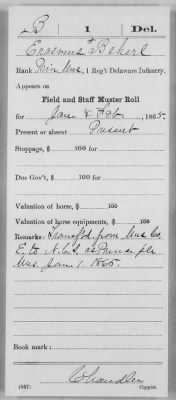 B | 1 | Del.
Erasmus Bekerl
Rank Prin Mus, 1 Reg't Delaware Infantry.
Appears on
Field and Staff Muster Roll
for Jan & Feb, 1865.
Present or absent Present
Stoppage, $ 100 for
Due Gov't, $ 100 for
Valuation of horse, $ 100
Valuation of horse equipments, $ 100
Remarks: Transf'd from Mus Co
E. to N.C.S. as Principle
Mus. Jan. 1 1865.
Book mark:
(857) Copyist.